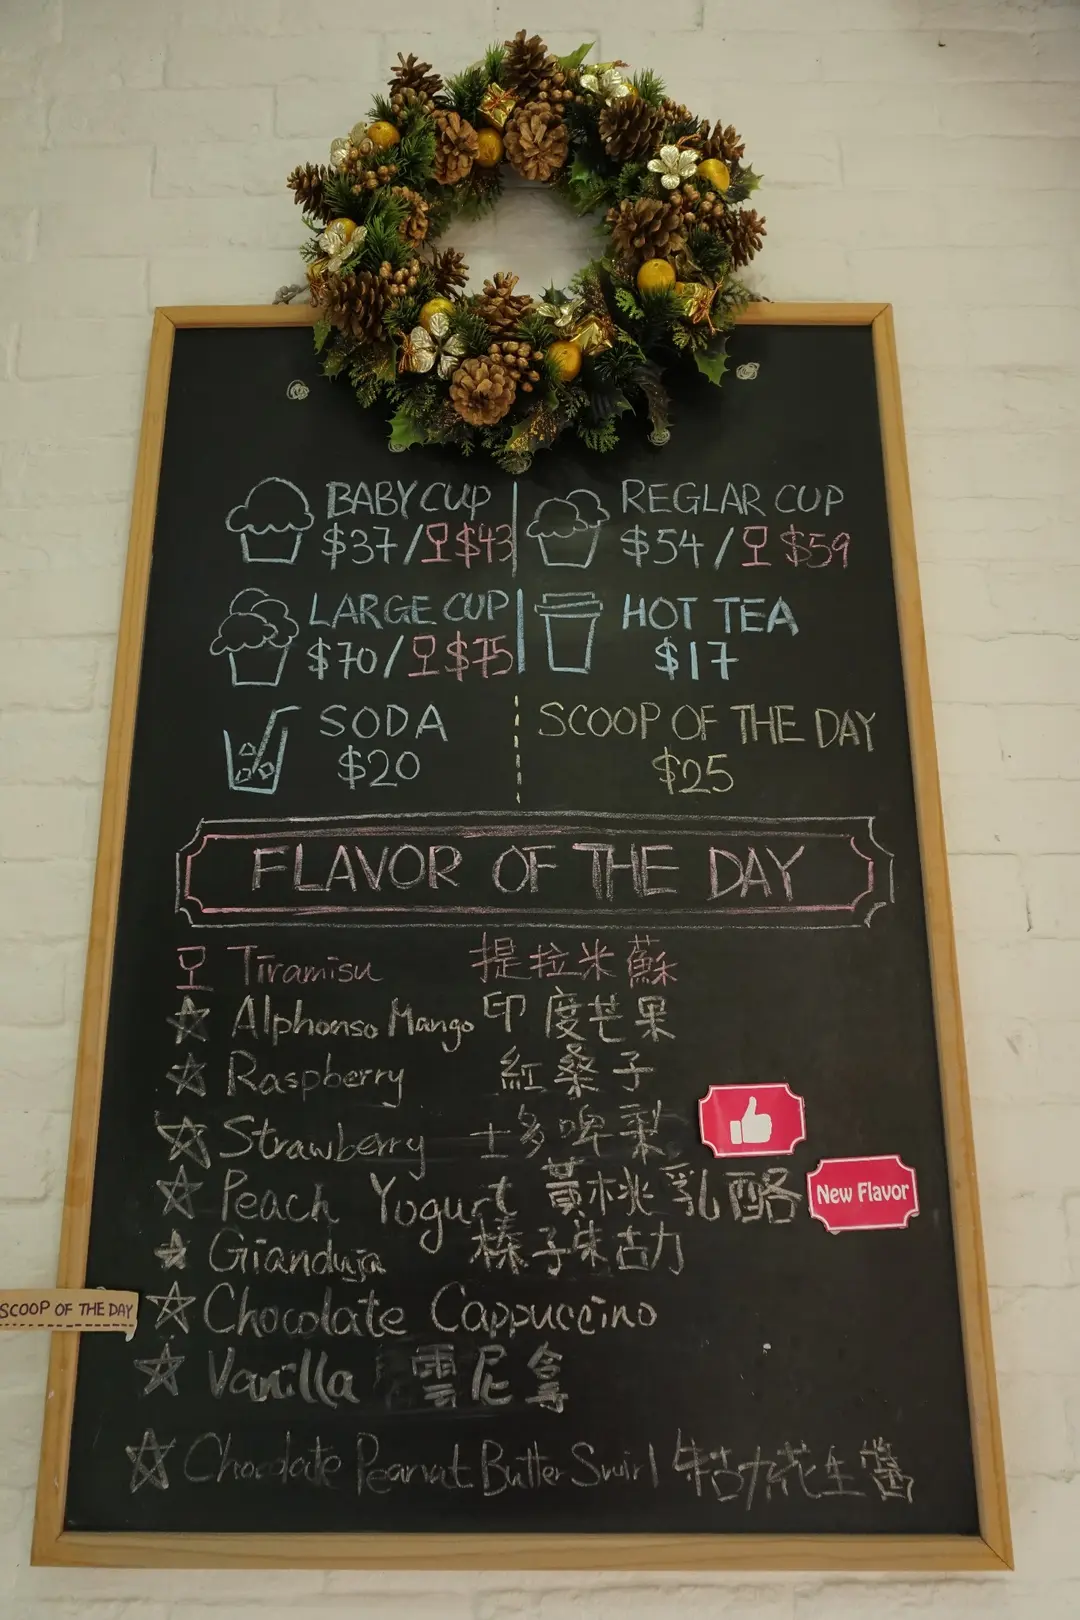 BABY CUP
$37/$43
REGLAR CUP
$54/$59
LARGE CUP
$70/$75
HOT TEA
$17
SODA
$20
SCOOP OF THE DAY
$25
FLAVOR OF THE DAY
Tiramisu 提拉米蘇
Alphonso Mango 印度芒果
Raspberry 紅桑子
Strawberry 士多啤梨
Peach Yogurt 黃桃乳酪 New Flavor
Gianduja 榛子朱古力
SCOOP OF THE DAY Chocolate Cappuccino
Vanilla 雲尼拿
Chocolate Peanut Butter Swirl 朱古力花生醬